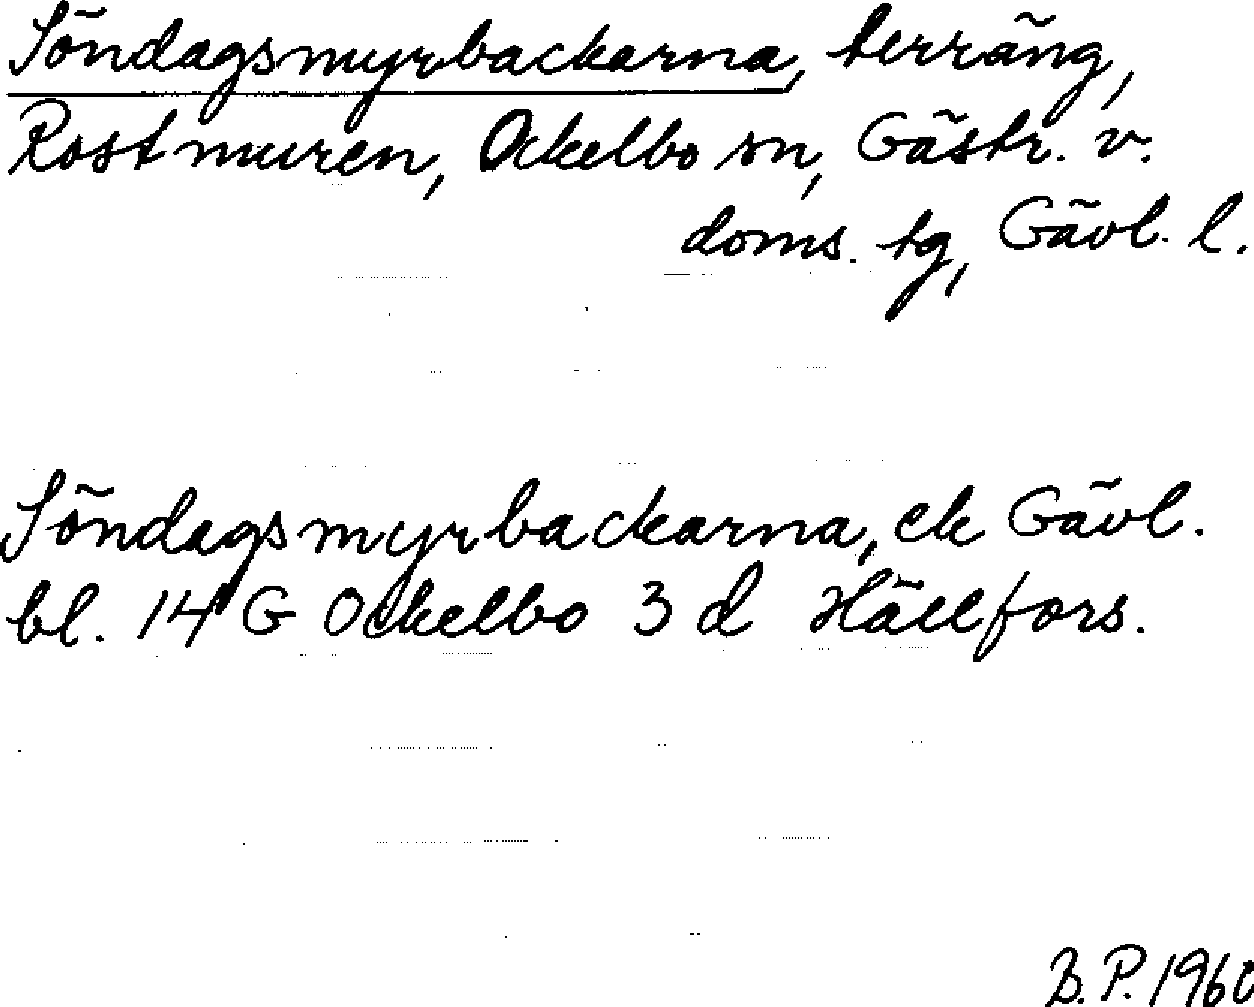 Söndagsmyrbackarna, terräng,
Rostmuren, Ockelbo sn, Gästr. v.
doms. tg, Gävl. l.
Söndagsmyrbackarna, ek Gävl.
bl. 14 G Ockelbo 3 d Hällfors.
B.P. 1960